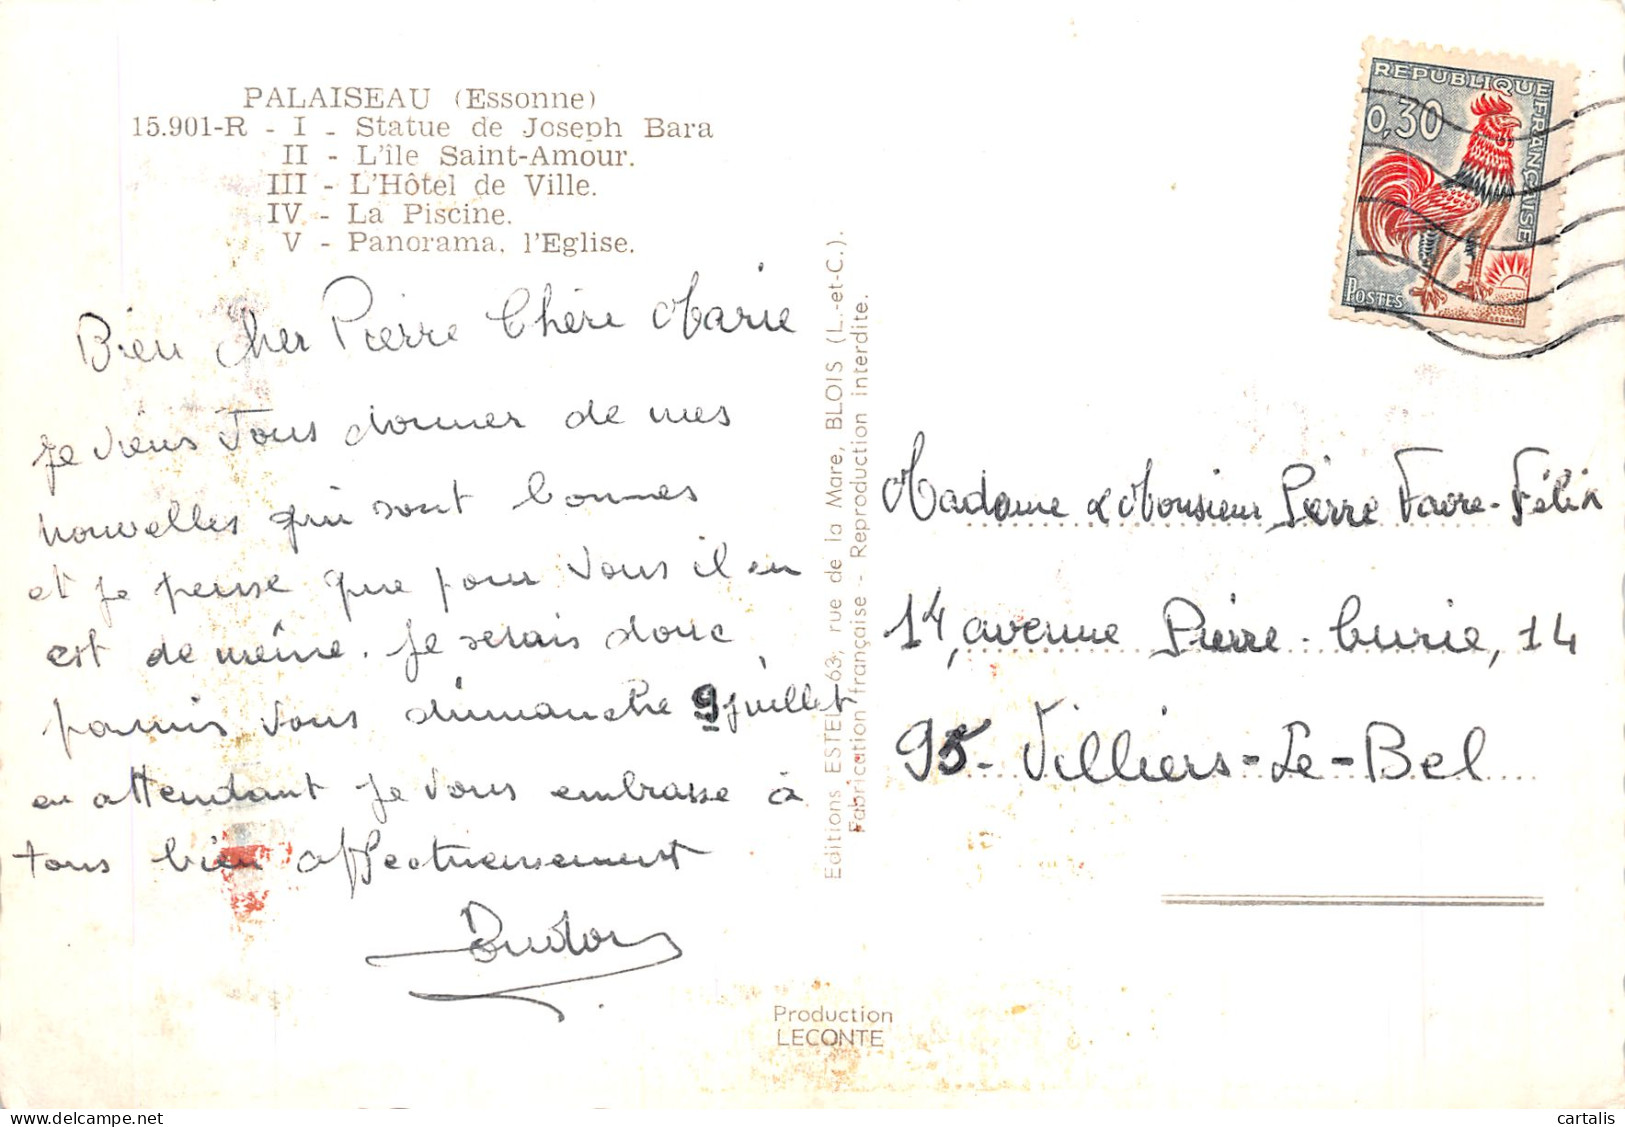 PALAISEAU (Essonne)
15.901-R - I - Statue de Joseph Bara
II - L'île Saint-Amour.
III - L'Hôtel de Ville.
IV - La Piscine.
V - Panorama, l'Eglise.
Bien cher Pierre Chère Marie
je viens vous donner de mes
nouvelles qui sont bonnes
et je pense que pour vous il en
est de même. Je serais donc
parmis vous dimanche 9 juillet
en attendant je vous embrasse à
tous bien affectueusement
Editions ESTEL 63, rue de la Mare, BLOIS (L.-et-C.).
Fabrication française - Reproduction interdite.
Production
LECONTE
REPUBLIQUE FRANÇAISE
0,30
POSTES
DECARIS
Madame & Monsieur Pierre Favre-Félix
14, avenue Pierre-Curie, 14
95-Villiers-Le-Bel
cartalis